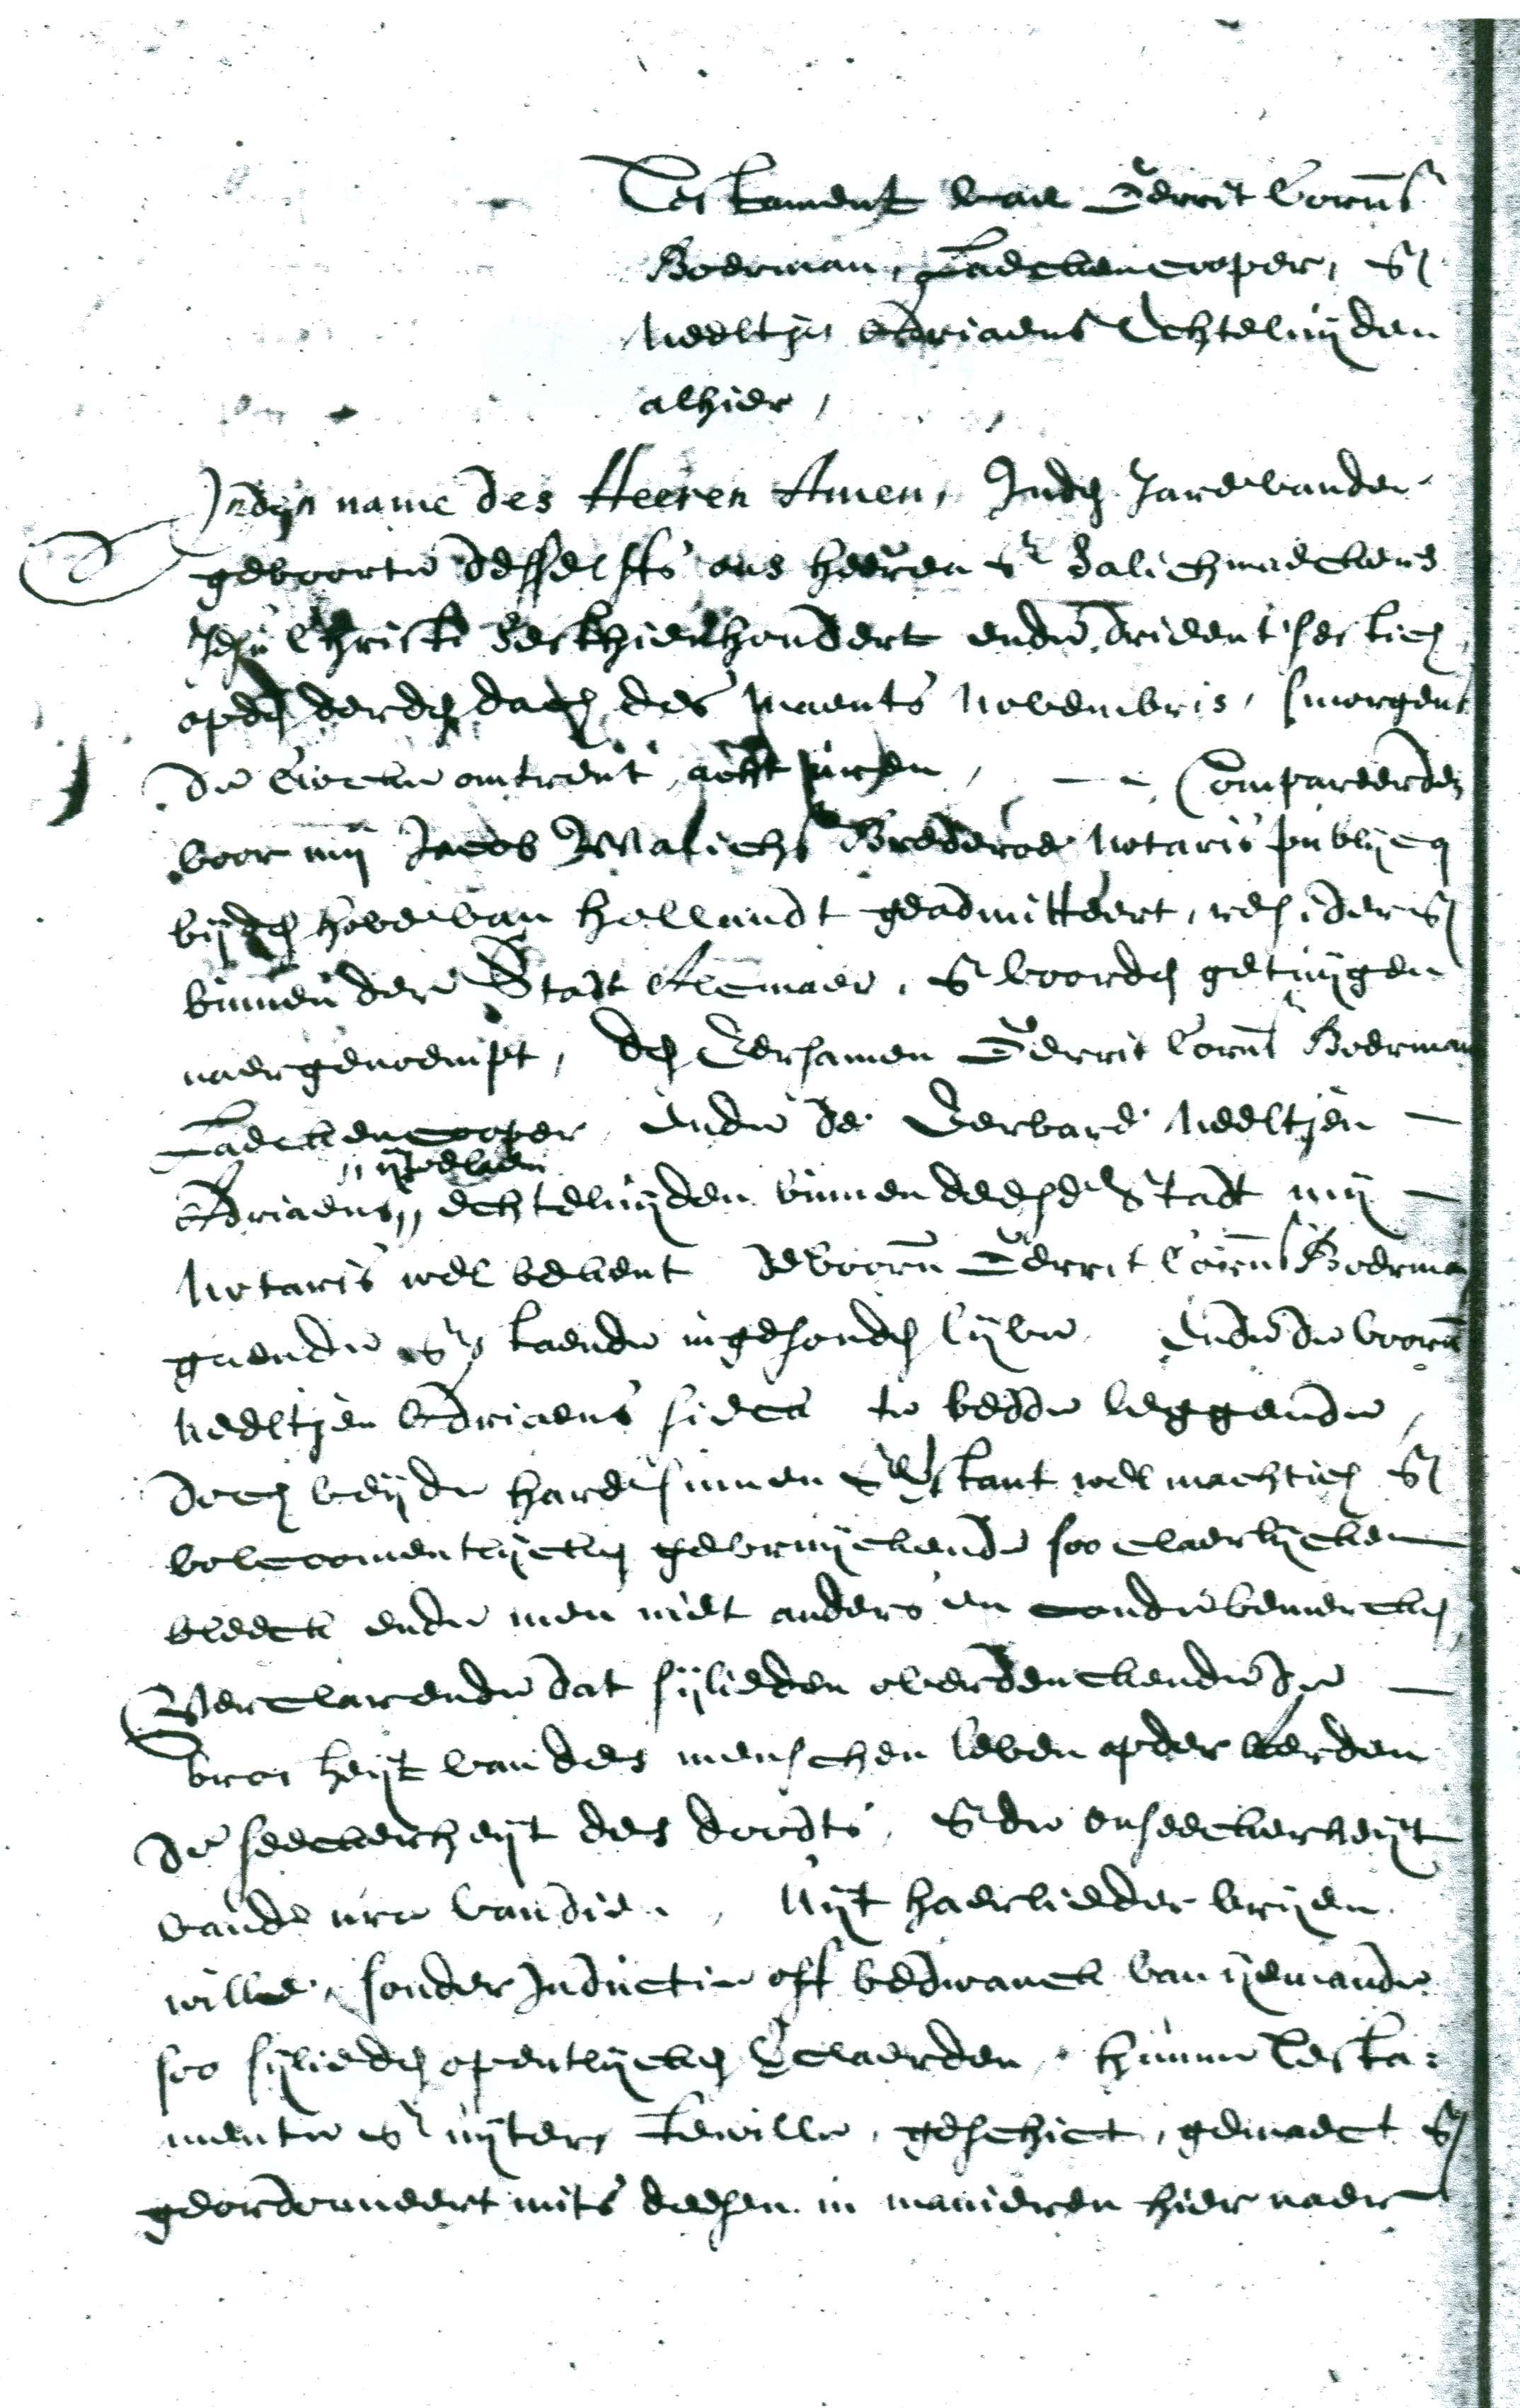 Testament van Gerrit Corns
Boerman, Laeckencooper, en
Neeltje Adriaens Echteluijden
alhier,
Inden name des Heeren Amen, Inden Jare vande
geboorte desselfs ons heeren en Salichmaeckers
Jesu Christi Sesthienhondert ende drientsestich
opden derden dach des maents Novembris, smorgens
de clocke omtrent acht uren, Compareerden
voor mij Jacob Brederode Notaris publijcq
bijden hove van Hollandt geadmitteert, residerende
binnen der Stadt Alcmaer, en voorden getuijgen
naergenoempt, den Eersamen Gerrit Corns Boerman
Laeckencooper, ende de Eerbare Neeltjen
Adriaens echteluijden binnen deese Stadt mij
Notaris wel bekent de voorn Gerrit Corns Boerman
gaende en staende in gesonden lijve Ende de voorn
Neeltjen Adriaens sieck te bedde leggende,
doch beijde hare sinnen verstant wel machtich en
volcomentlijcken gebruijckende soo claerlijcken
bleeck ende men niet anders en conde bemercken,
Verclarende dat sijlieden overdenckende de
broosheijt van des menschen leven opder Eerden
de seeckerheijt des doodts, en de onseeckerheijt
vande ure van dien, Uijt haerlieder vrijen
wille, sonder Inductie off bedwanck van ijemande
soo sijlieden opentlijcken verclaerden, hunne testa:
mente en uijterste wille, geschict, gemaect en
geordonneert mits deesen in manieren hier naer